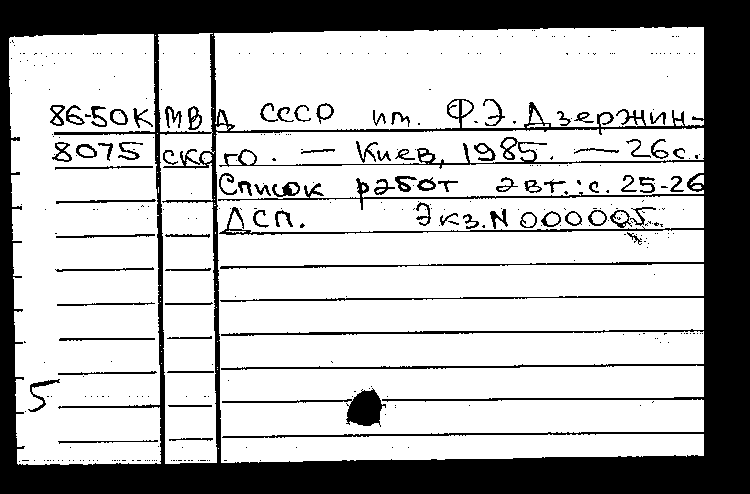 86-50К МВД СССР им. Ф.Э.Дзержин-
8075 ского. — Киев, 1985. — 26с.
Список работ авт.: с. 25-26
ДСП. Экз.N 000005.
5